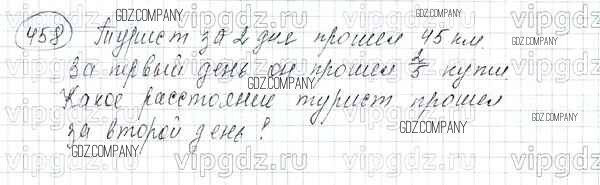 458 Турист за 2 дня прошел 45 км.
За первый день он прошел 2/5 пути.
Какое расстояние турист прошел
за второй день?
GDZ.COMPANY
GDZ.COMPANY
GDZ.COMPANY
GDZ.COMPANY
GDZ.COMPANY
GDZ.COMPANY
GDZ.COMPANY
vipgdz.ru
vipgdz.ru
vipgdz.ru